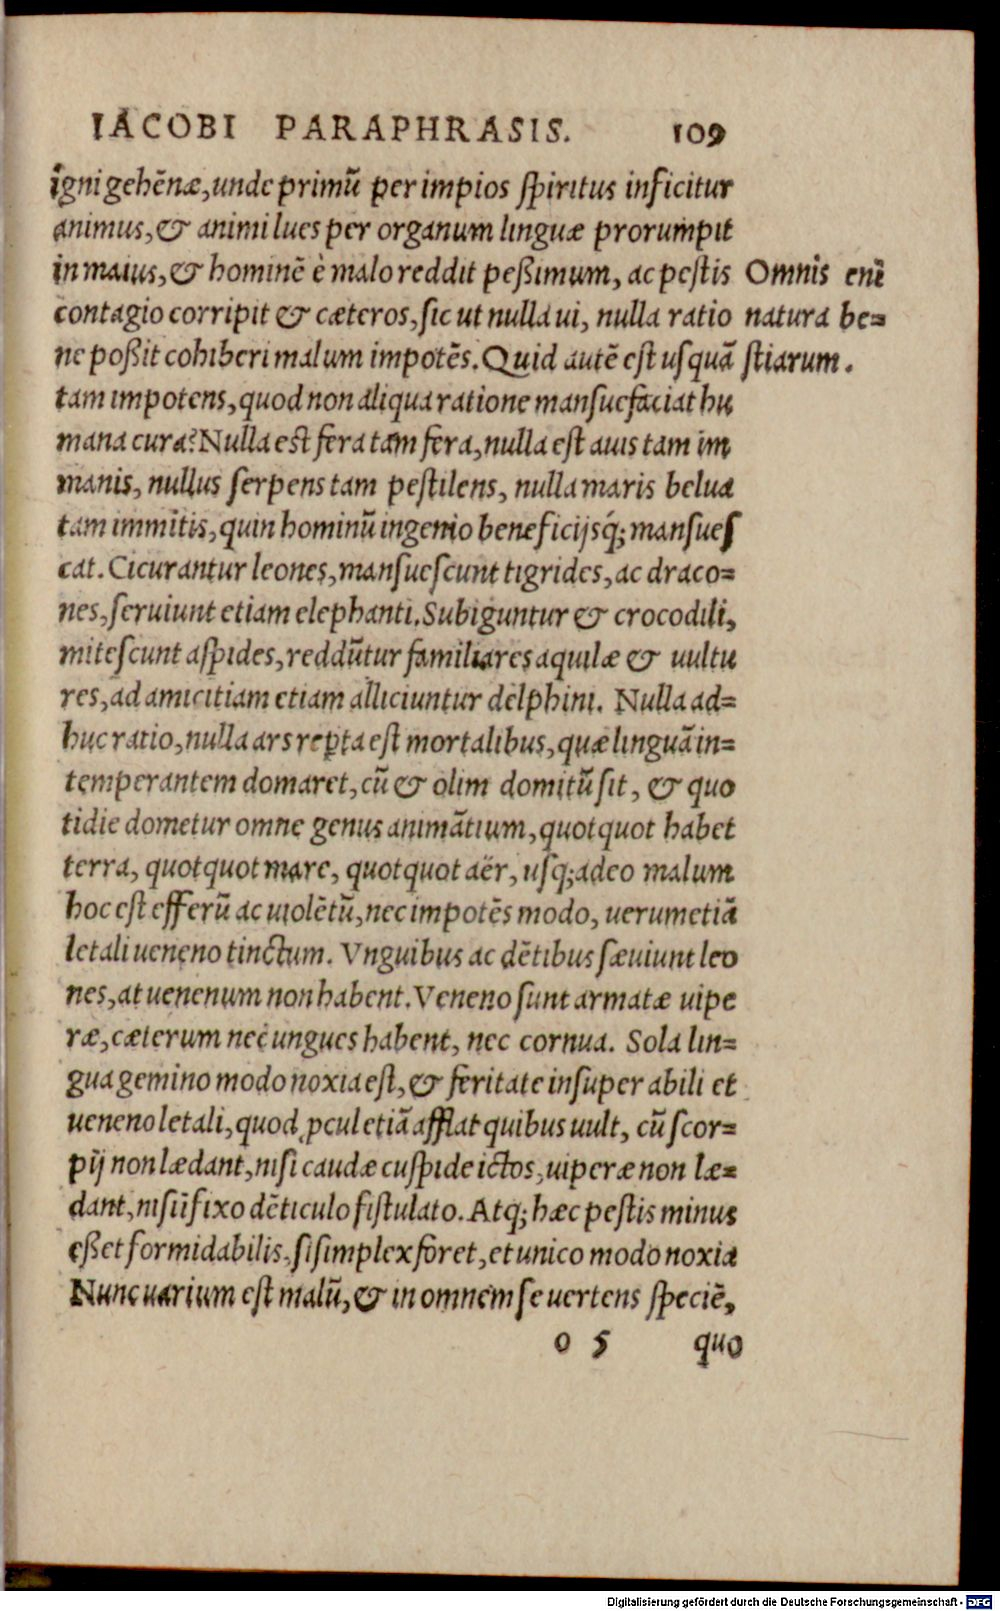 IACOBI PARAPHRASIS. 109
igni gehēnæ, unde primū per impios ſpiritus inficitur
animus, & animi lues per organum linguæ prorumpit
in maius, & hominē è malo reddit peßimum, ac peſtis
Omnis enī
contagio corripit & cæteros, ſic ut nulla ui, nulla ratio
natura be=
ne poßit cohiberi malum impotēs. Quid autē eſt uſquā
ſtiarum.
tam impotens, quod non aliqua ratione manſuefaciat hu
mana cura? Nulla eſt fera tam fera, nulla eſt auis tam im
manis, nullus ſerpens tam peſtilens, nulla maris belua
tam immitis, quin hominū ingenio beneficijsq́; manſueſ
cat. Cicurantur leones, manſueſcunt tigrides, ac draco=
nes, ſeruiunt etiam elephanti. Subiguntur & crocodili,
miteſcunt aſpides, reddūtur familiares aquilæ & uultu
res, ad amicitiam etiam alliciuntur delphini. Nulla ad=
huc ratio, nulla ars rep̱ta eſt mortalibus, quæ linguā in=
temperantem domaret, cū & olim domitū ſit, & quo
tidie dometur omne genus animātium, quotquot habet
terra, quotquot mare, quotquot aër, uſq; adeo malum
hoc eſt efferū ac uiolētū, nec impotēs modo, uerumetiā
letali ueneno tinctum. Vnguibus ac dētibus ſæuiunt leo
nes, at uenenum non habent. Veneno ſunt armatæ uipe
ræ, cæterum nec ungues habent, nec cornua. Sola lin=
gua gemino modo noxia eſt, & feritate inſuperabili et
ueneno letali, quod ꝓcul etiā afflat quibus uult, cū ſcor=
pij non lædant, niſi caudæ cuſpide ictos, uiperæ non læ=
dant, niſi īfixo dēticulo fiſtulato. Atq; hæc peſtis minus
eßet formidabilis, ſi ſimplex foret, et unico modo noxia
Nunc uarium eſt malū, & in omnem ſe uertens ſpeciē,
o 5 quo
Digitalisierung gefördert durch die Deutsche Forschungsgemeinschaft - DFG